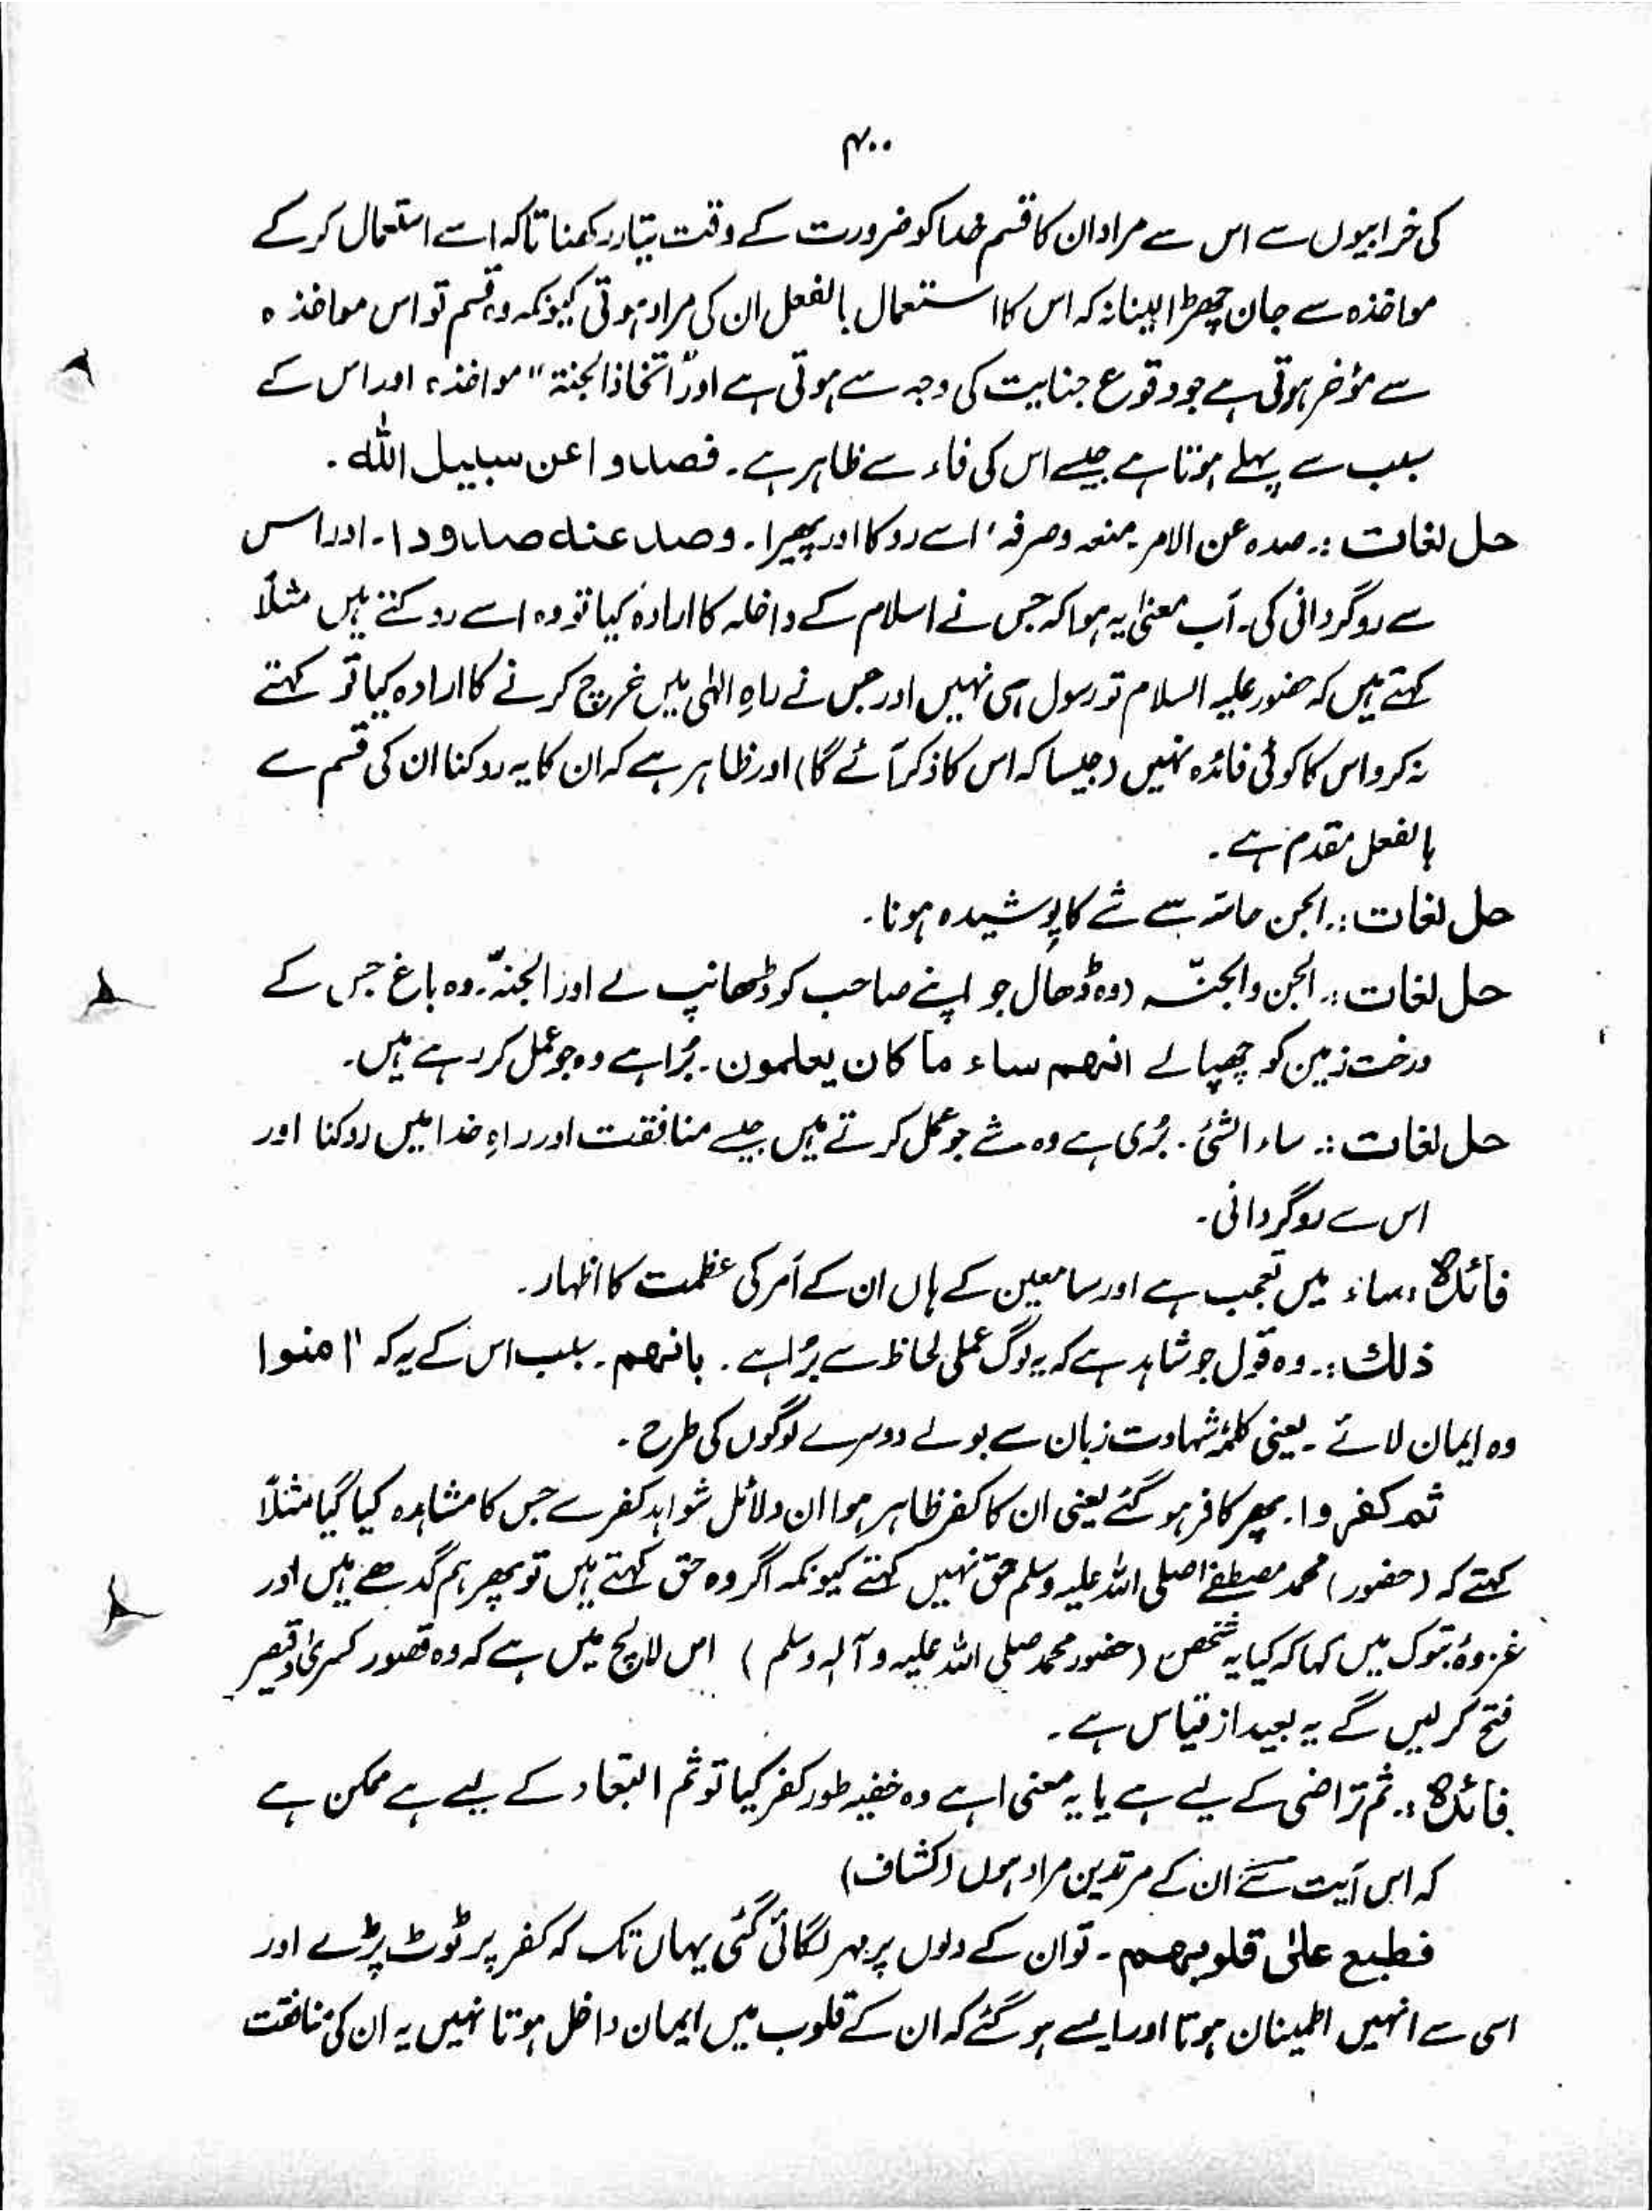 ۴۰۰
کی خرابیوں سے اس سے مراد ان کا قسم خدا کو ضرورت کے وقت تیار رکھنا تاکہ اسے استعمال کر کے
مواخذہ سے جان چھڑا لینا نہ کہ اس کا استعمال بالفعل ان کی مراد ہوتی کیونکہ وہ قسم تو اس مواخذہ
سے مؤخر ہوتی ہے جو وقوع جنایت کی وجہ سے ہوتی ہے اور "اتخاذ الجنۃ" مواخذہ اور اس کے
سبب سے پہلے ہوتا ہے جیسے اس کی فاء سے ظاہر ہے۔ فصدوا عن سبیل اللّٰہ۔
حل لغات :۔ صدہ عن الامر۔ منعہ وصرفہ، اسے روکا اور پھیرا۔ وصد عنہ صدودا۔ اور اس
سے روگردانی کی۔ اَب معنیٰ یہ ہوا کہ جس نے اسلام کے داخلہ کا ارادہ کیا تو وہ اسے روکتے ہیں مثلاً
کہتے ہیں کہ حضور علیہ السلام تو رسول ہی نہیں اور جس نے راہِ الٰہی میں خرچ کرنے کا ارادہ کیا تو کہتے
نہ کرو اس کا کوئی فائدہ نہیں (جیسا کہ اس کا ذکر آئے گا) اور ظاہر ہے کہ ان کا یہ روکنا ان کی قسم سے
بالفعل مقدم ہے۔
حل لغات :۔ الجن حاسّہ سے شے کا پوشیدہ ہونا۔
حل لغات :۔ الجن والجنّہ (وہ ڈھال جو اپنے صاحب کو ڈھانپ لے اور الجنّہ۔ وہ باغ جس کے
درخت زمین کو چھپا لے انھم ساء ما کان یعلمون۔ بُرا ہے وہ جو عمل کر رہے ہیں۔
حل لغات :۔ ساء الشئ۔ بُری ہے وہ شے جو عمل کرتے ہیں جیسے منافقت اور راہِ خدا میں روکنا اور
اس سے روگردانی۔
فائدہ :۔ ساء میں تعجب ہے اور سامعین کے ہاں ان کے اَمر کی عظمت کا اظہار۔
ذلك :۔ وہ قول جو شاہد ہے کہ یہ لوگ عملی لحاظ سے بُرا ہے۔ بانھم۔ بسبب اس کے یہ کہ "امنوا
وہ ایمان لائے۔ یعنی کلمۂ شہادت زبان سے بولے دوسرے لوگوں کی طرح۔
ثم کفروا۔ پھر کافر ہو گئے یعنی ان کا کفر ظاہر ہوا ان دلائل شواہد کفر سے جس کا مشاہدہ کیا گیا مثلاً
کہتے کہ (حضور) محمد مصطفےٰ صلی اللہ علیہ وسلم حق نہیں کہتے کیونکہ اگر وہ حق کہتے ہیں تو پھر ہم گدھے ہیں اور
غزوۂ تبوک میں کہا کہ کیا یہ شخص (حضور محمد صلی اللہ علیہ وآلہ وسلم) اس لالچ میں ہے کہ وہ قصور کسریٰ و قیصر
فتح کر لیں گے یہ بعید از قیاس ہے۔
فائدہ :۔ ثم تراضی کے لیے ہے یا یہ معنی اہے وہ خفیہ طور کفر کیا تو ثم التبعاد کے لیے ہے ممکن ہے
کہ اس آیت سے ان کے مرتدین مراد ہوں (کشاف)
فطبع علیٰ قلوبھم۔ تو ان کے دلوں پر مہر لگائی گئی یہاں تک کہ کفر پر ٹوٹ پڑے اور
اسی سے انہیں اطمینان ہوتا اور ایسے ہو گئے کہ ان کے قلوب میں ایمان داخل ہوتا نہیں یہ ان کی منافقت